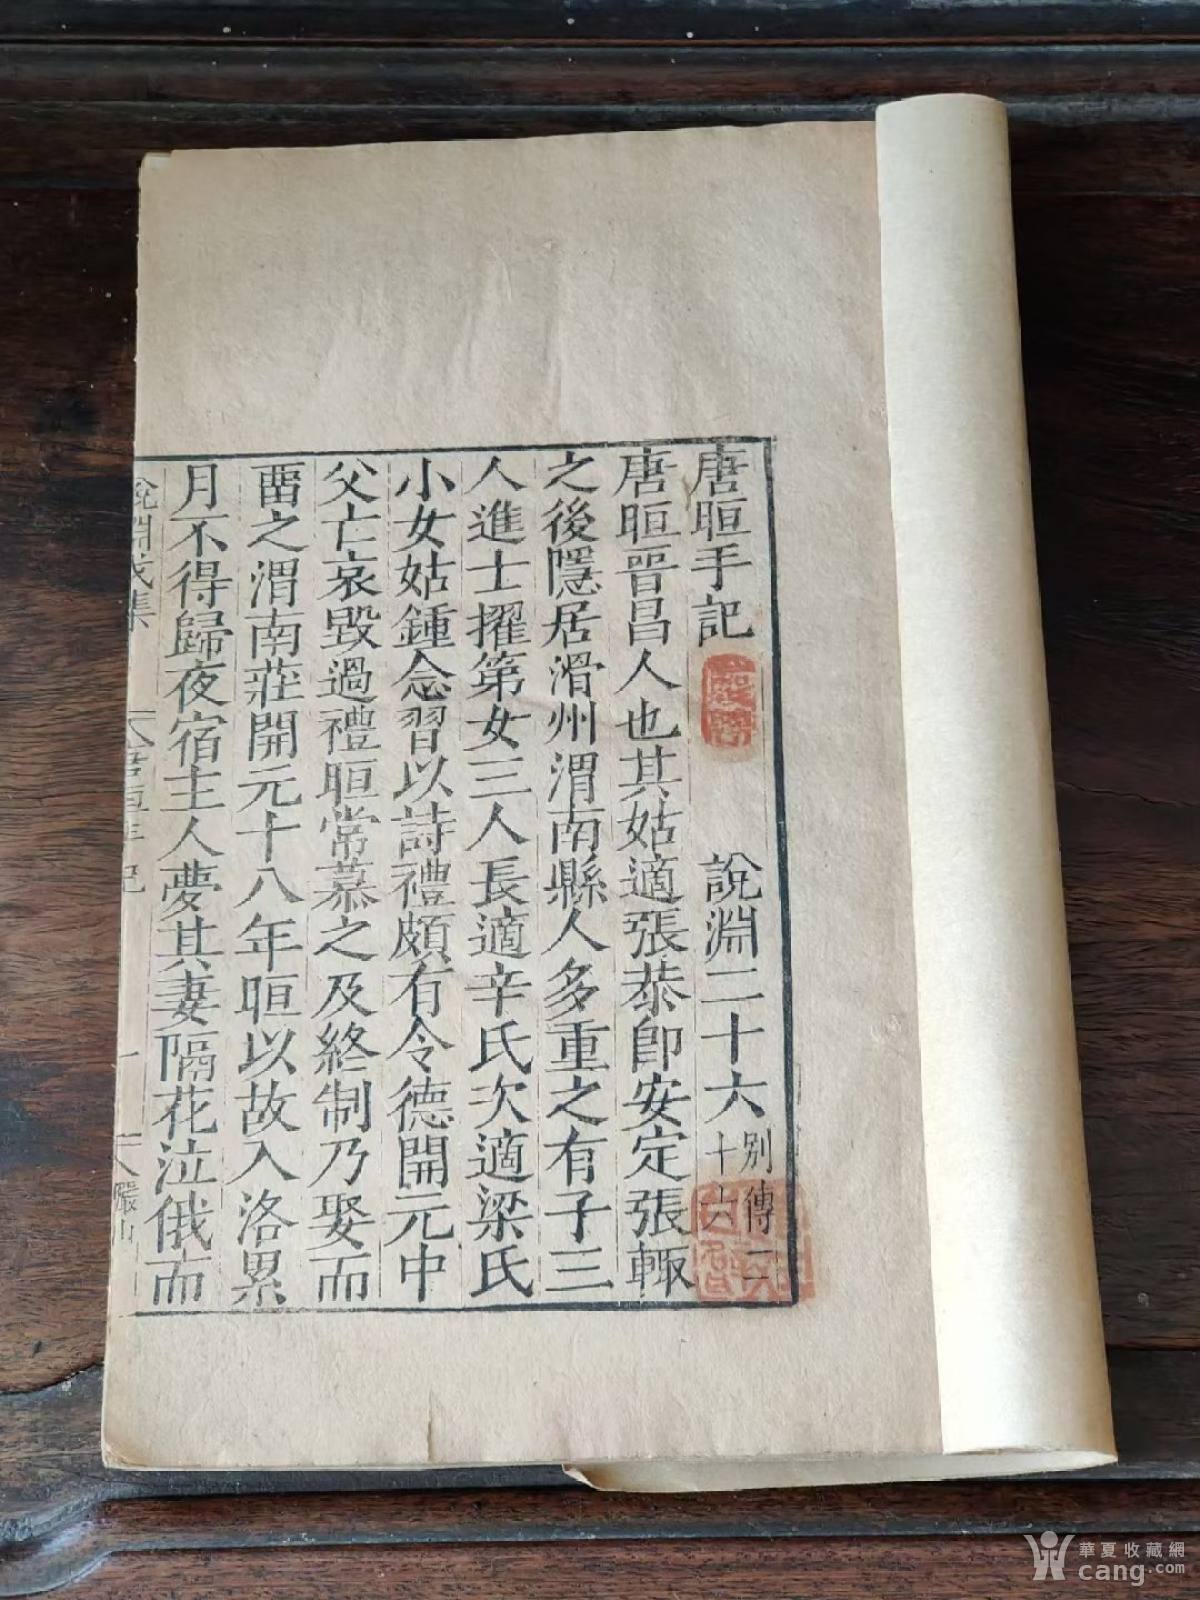 唐晅手記 說淵二十六 別傳二十六
唐晅晉昌人也其姑適張恭卽安定張輙
之後隱居滑州渭南縣人多重之有子三
人進士擢第女三人長適辛氏次適梁氏
小女姑鍾念習以詩禮頗有令德開元中
父亡哀毀過禮晅常慕之及終制乃娶而
畱之渭南莊開元十八年晅以故入洛累
月不得歸夜宿主人夢其妻隔花泣俄而
說淵戊集 唐晅手記 一 儼山
華夏收藏網
cang.com